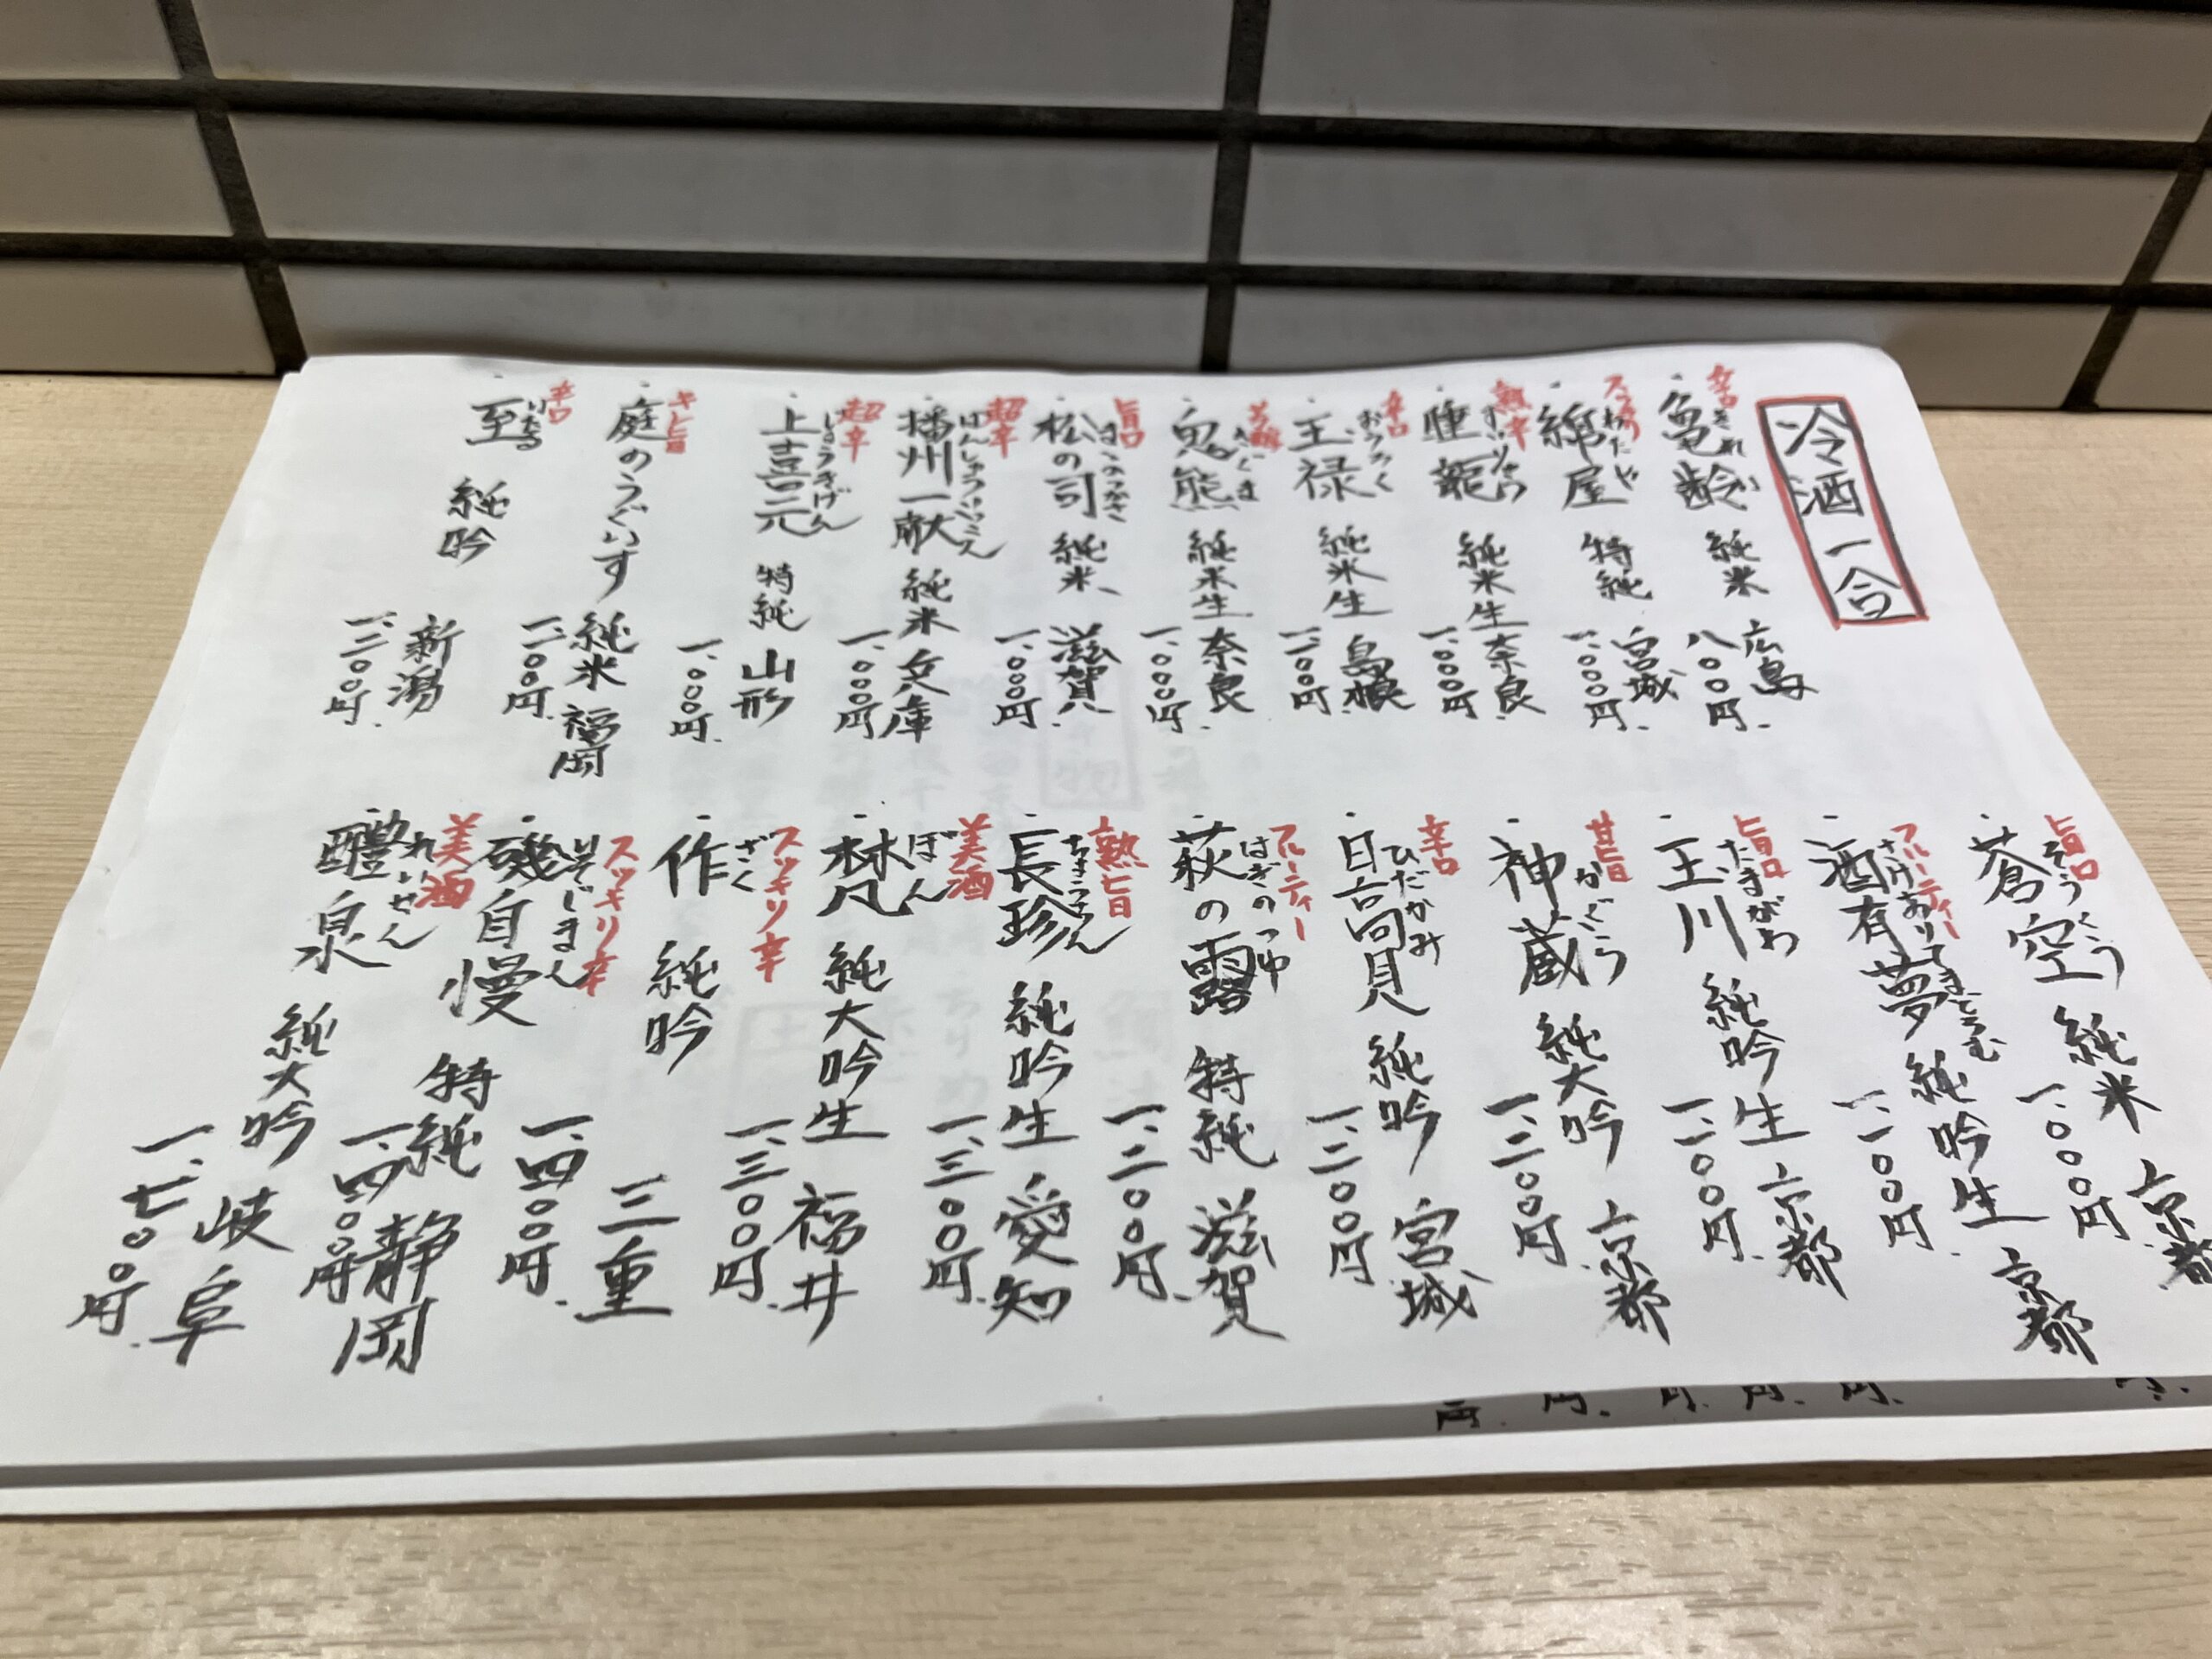 冷酒一合
辛口
亀齢 きれい 純米 広島
八〇〇円
綿屋 わたや 特純 宮城
一、〇〇〇円
熟辛
睡龍 すいりゅう 純米生 奈良
一、〇〇〇円
辛口
王禄 おうろく 純米生 島根
一、一〇〇円
鬼熊 純米生 奈良
一、〇〇〇円
旨口
松の司 まつのつかさ 純米 滋賀
一、〇〇〇円
超辛
播州一献 ばんしゅういっこん 純米 兵庫
一、〇〇〇円
超辛
上喜元 じょうきげん 特純 山形
一、一〇〇円
キレ旨
庭のうぐいす 純米 福岡
一、一〇〇円
辛口
至 いたる 純吟 新潟
一、二〇〇円
旨口
蒼空 そうくう 純米 京都
一、〇〇〇円
フルーティー
酒有夢 さけありてまどろむ 純吟生 京都
一、一〇〇円
旨口
玉川 たまがわ 純吟生 京都
一、一〇〇円
甘旨
神蔵 かぐら 純大吟 京都
一、二〇〇円
辛口
日高見 ひだかみ 純吟 宮城
一、二〇〇円
フルーティー
萩の露 はぎのつゆ 特純 滋賀
一、二〇〇円
熟旨
長珍 ちょうちん 純吟生 愛知
一、三〇〇円
美酒
梵 ぼん 純大吟生 福井
一、三〇〇円
スッキリ辛
作 ざく 純吟 三重
一、四〇〇円
スッキリ辛
磯自慢 いそじまん 特純 静岡
一、四〇〇円
美酒
醴泉 れいせん 純大吟 岐阜
一、七〇〇円